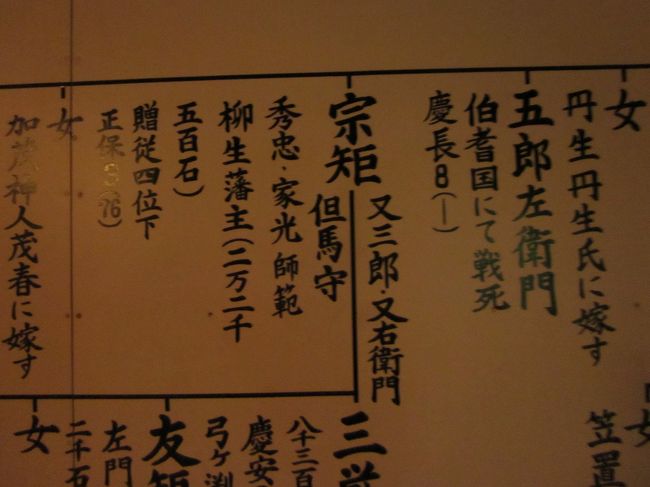 女
丹生丹生氏に嫁す
五郎左衛門
伯耆国にて戦死
慶長8(一)
宗矩
又三郎・又右衛門
但馬守
秀忠・家光師範
柳生藩主(二万二千
五百石)
贈従四位下
正保3(76)
女
加茂神人茂春に嫁す
女
笠置
三
八十三百
慶安
弓ヶ渕
友矩
左門
二千石
女